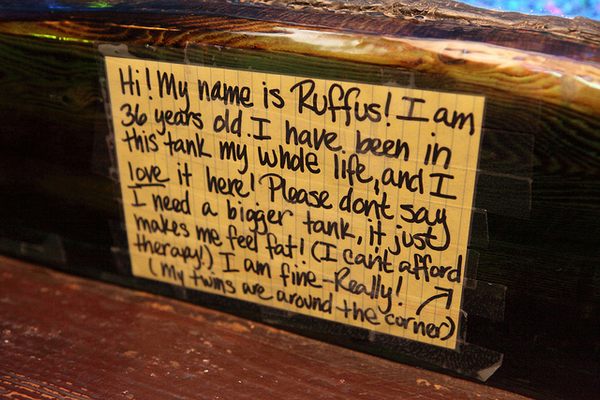 Hi! My name is Ruffus! I am
36 years old. I have been in
this tank my whole life, and I
love it here! Please dont say
I need a bigger tank, it just
makes me feel fat! (I can't afford
therapy!) I am fine-Really!
(my twins are around the corner)